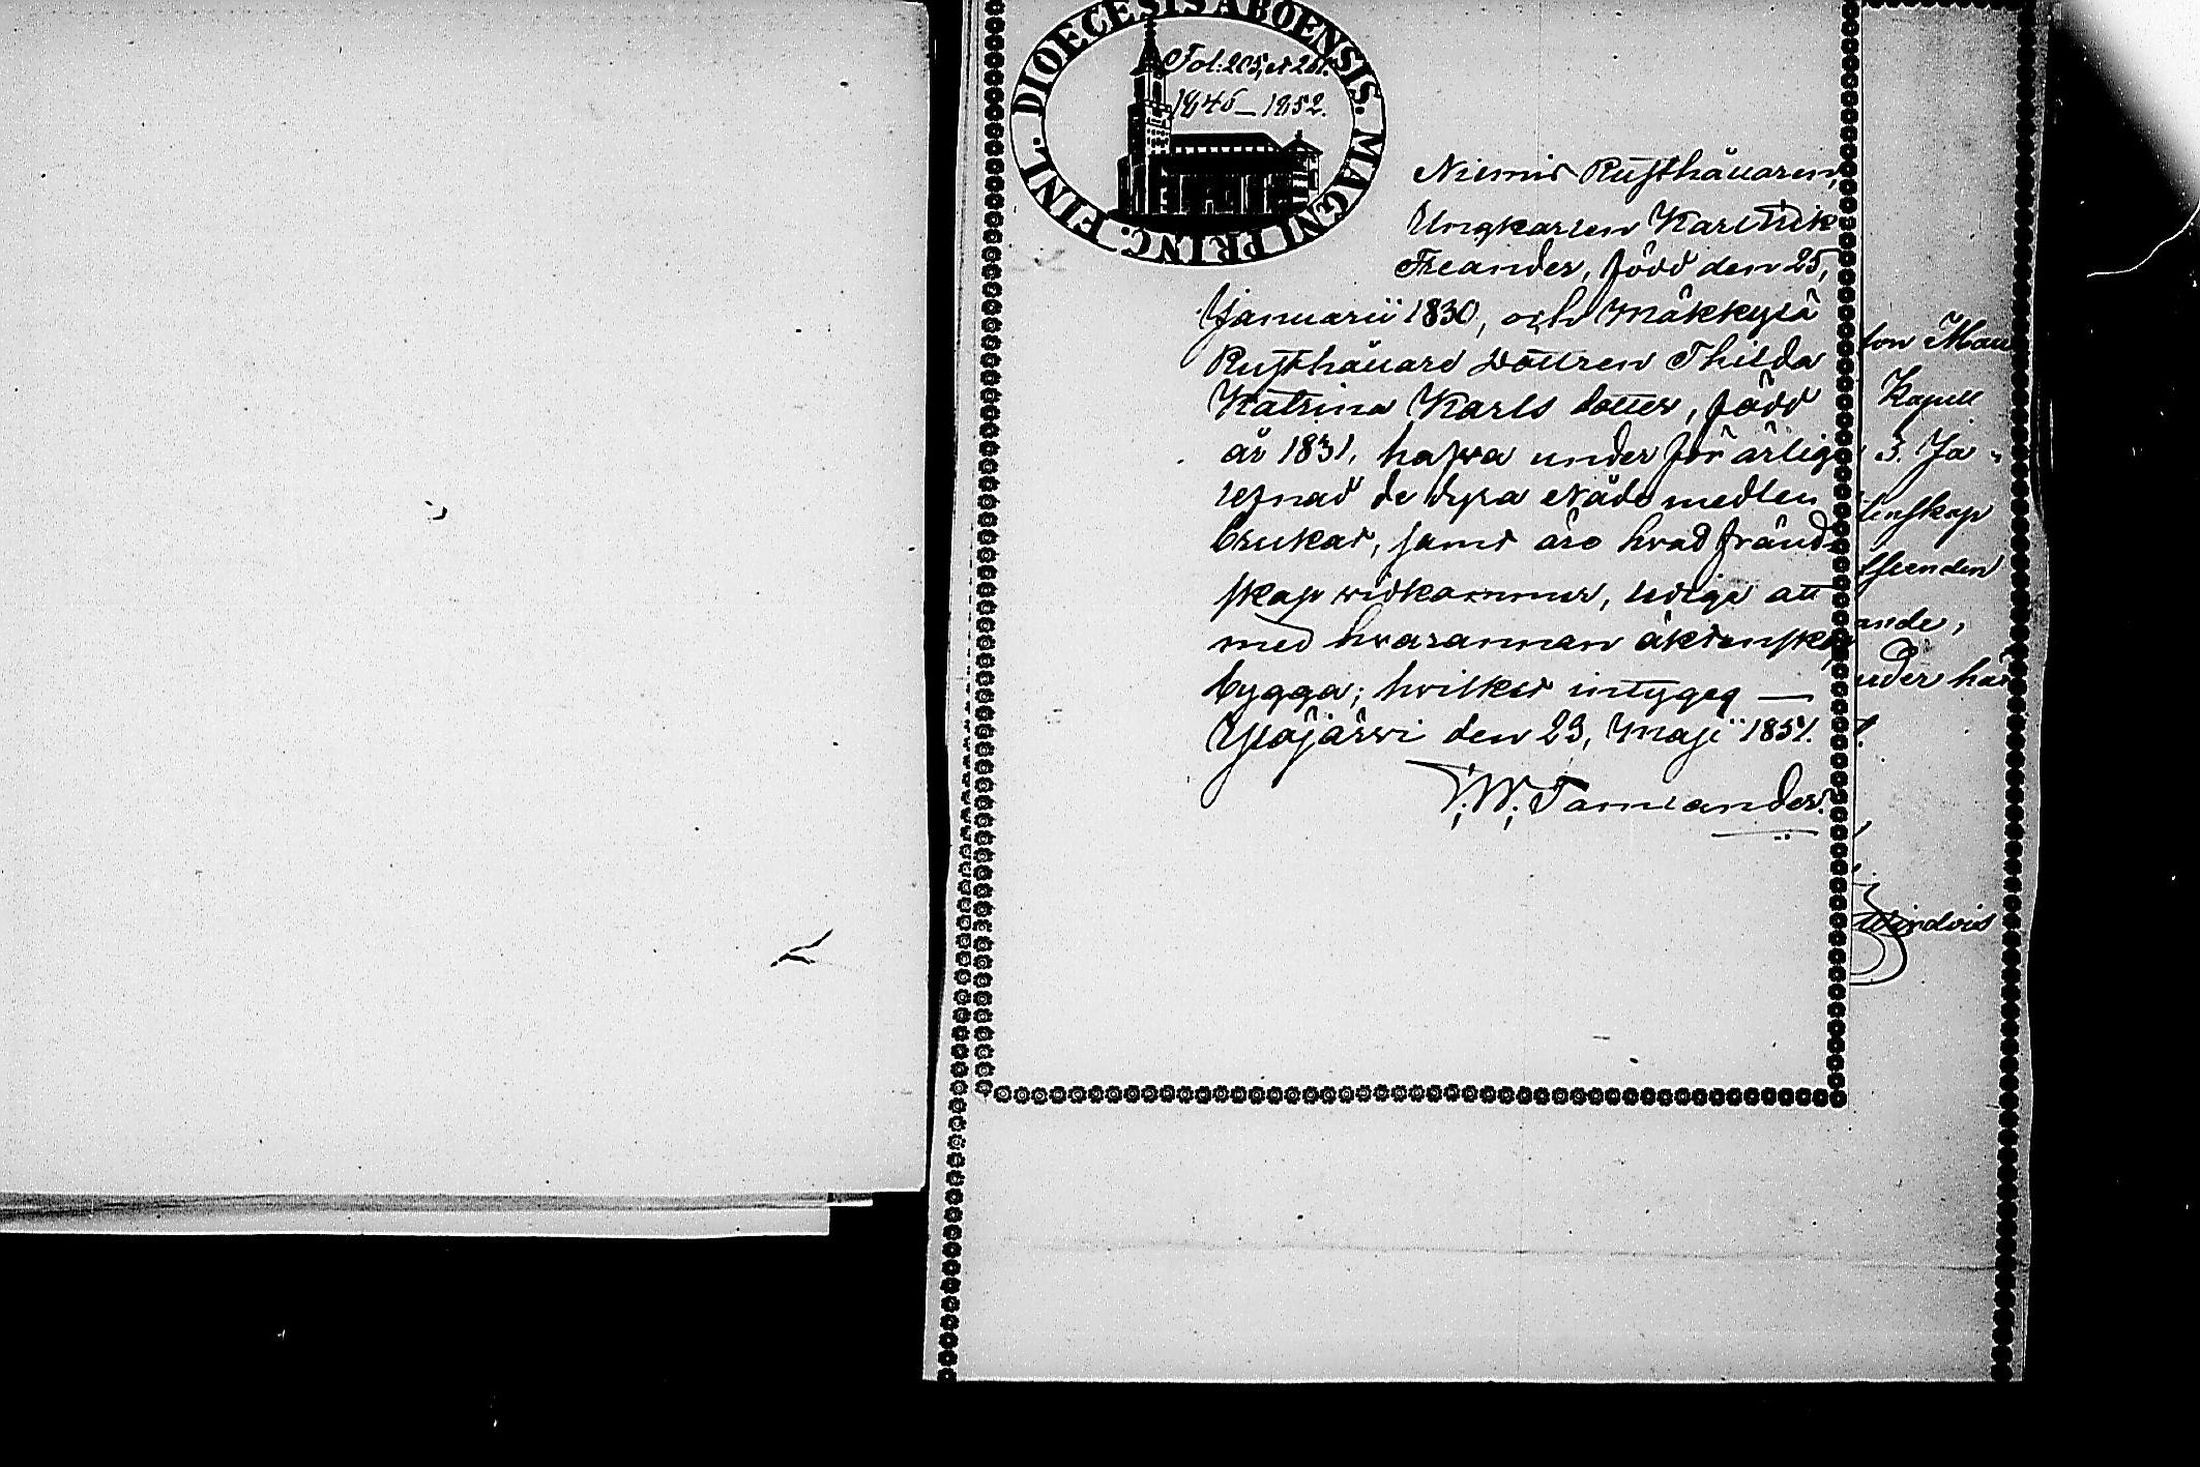 DIOECESIS ABOENSIS. MAGNI PRINC. FINL.
Fol: 205, et 261.
1846 — 1852.
Niemis Rusthåuaren,
Ungkarlen Karl Erik
Freander, född den 25,
Januarii 1830, och Mäkkylä
Rusthåuare Dottren Thilda
Katrina Karls dotter, född
år 1831, hafva under för ärligt
lefnad de dyra Nådemedlen
brukat, samt äro hvad fränd-
skap vidkommer, lediga att
med hvarannan äktenskap
bygga; hvilket intygeg —
Ylöjärvi den 23, Maji 1851.
F. W. Tamlander.
Kapell
3. Ja